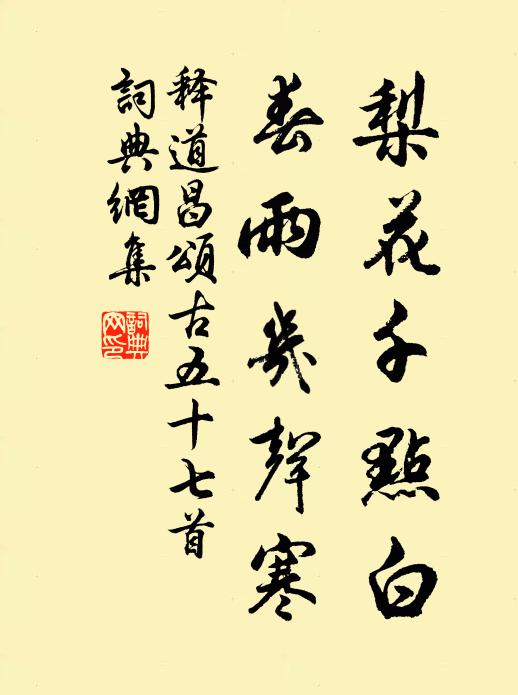 梨花千點白
春雨幾聲寒
释道昌頌古五十七首
詞典網集
詞典网印